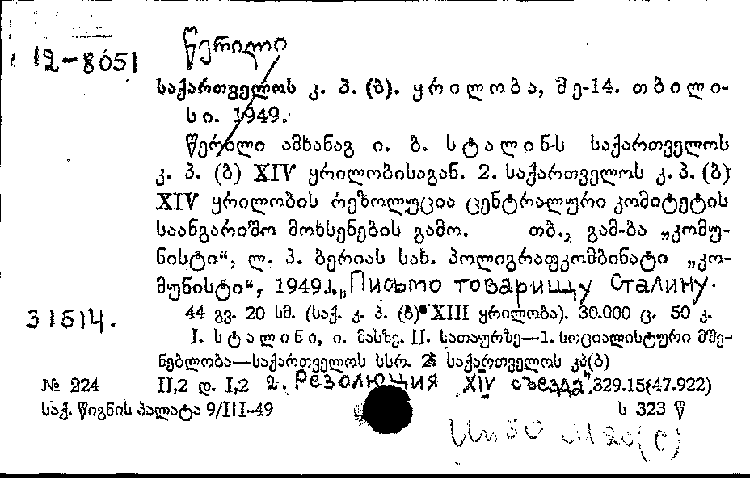 წერილი
12-8051
საქართველოს კ. პ. (ბ). ყრილობა, მე-14. თბილი-
სი. 1949.
წერილი ამხანაგ ი. ბ. სტალინს საქართველოს
კ. პ. (ბ) XIV ყრილობისაგან. 2. საქართველოს კ. პ. (ბ)
XIV ყრილობის რეზოლუცია ცენტრალური კომიტეტის
საანგარიშო მოხსენების გამო. თბ., გამ-ბა „კომუ-
ნისტი“, ლ. პ. ბერიას სახ. პოლიგრაფკომბინატი „კო-
მუნისტი“, 1949. „Письмо товарищу Сталину.
44 გვ. 20 სმ. (საქ. კ. პ. (ბ) XIII ყრილობა). 30.000 ც. 50 კ.
31514.
I. სტალინი, ი. მასზე. II. სათაურზე—1. სოციალისტური მშე-
ნებლობა—საქართველოს სსრ. 2. საქართველოს კპ(ბ)
№ 224 II,2 დ. I,2 2. Резолюция XIV съезда" 329.15(47.922)
საქ. წიგნის პალატა 9/III-49 ს 323 წ